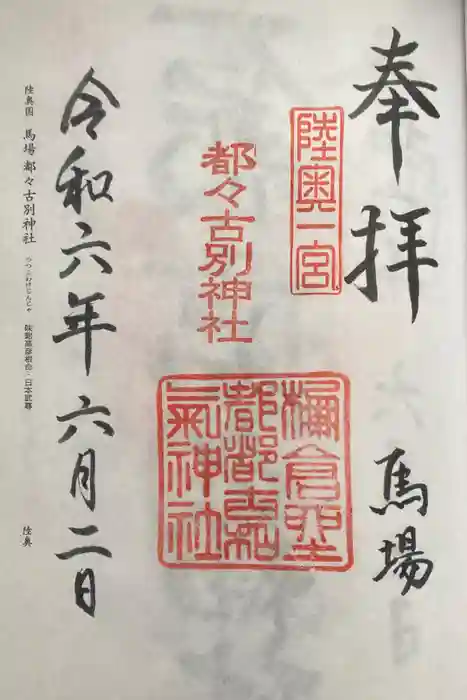 奉拝
馬場
陸奥一宮
都々古別神社
棚倉聖
都都古和
氣神社
令和六年六月二日
陸奥国 馬場都々古別神社 つつこわけじんじゃ 味耜高彦根命・日本武尊
陸奥